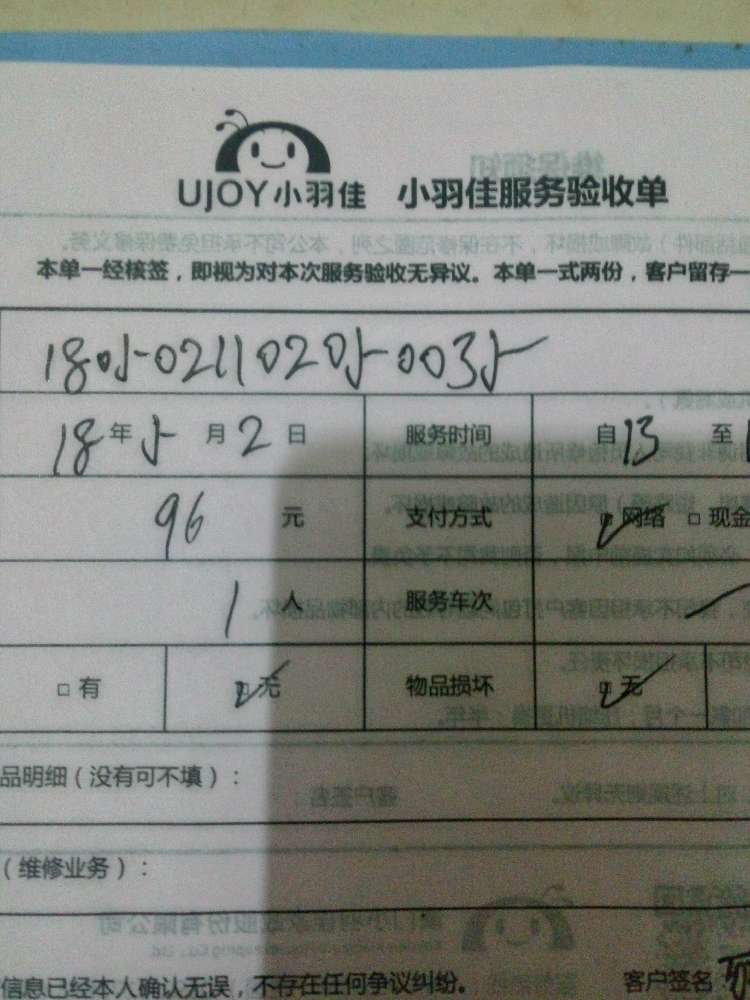 UJOY小羽佳 小羽佳服务验收单
本单一经核签，即视为对本次服务验收无异议。本单一式两份，客户留存一
1805021102050035
18年5月2日 服务时间 自13 至1
96元 支付方式 □网络 □现金
1人 服务车次
□有 □无 物品损坏 □无
品明细（没有可不填）：
（维修业务）：
信息已经本人确认无误，不存在任何争议纠纷。 客户签名